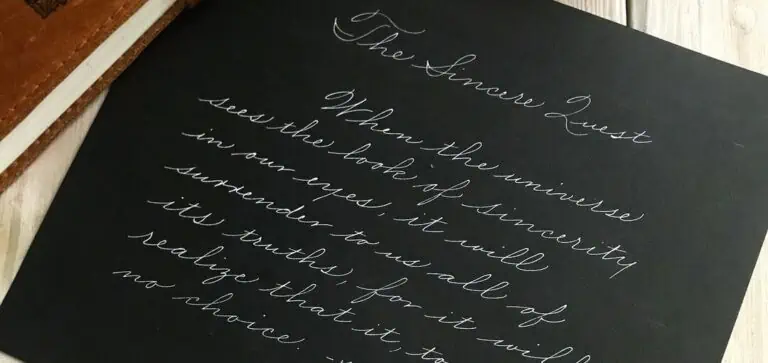 The Sincere Quest
When the universe
sees the look of sincerity
in our eyes, it will
surrender to us all of
its truths, for it will
realize that it, to
no choice. -